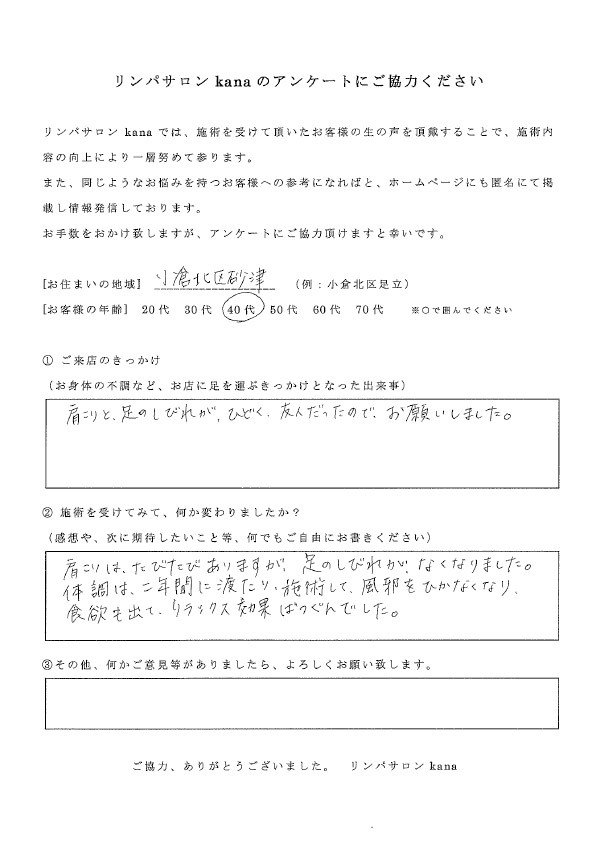 リンパサロン kana のアンケートにご協力ください
リンパサロン kana では、施術を受けて頂いたお客様の生の声を頂戴することで、施術内
容の向上により一層努めて参ります。
また、同じようなお悩みを持つお客様への参考になればと、ホームページにも匿名にて掲
載し情報発信しております。
お手数をおかけ致しますが、アンケートにご協力頂けますと幸いです。
[お住まいの地域] 小倉北区砂津 (例:小倉北区足立)
[お客様の年齢] 20代 30代 40代 50代 60代 70代 ※○で囲んでください
① ご来店のきっかけ
(お身体の不調など、お店に足を運ぶきっかけとなった出来事)
肩こりと、足のしびれが、ひどく、友人だったので、お願いしました。
② 施術を受けてみて、何か変わりましたか?
(感想や、次に期待したいこと等、何でもご自由にお書きください)
肩こりは、たびたびありますが、足のしびれが、なくなりました。
体調は、二年間に渡たり、施術して、風邪をひかなくなり、
食欲も出て、リラックス効果ばつぐんでした。
③その他、何かご意見等がありましたら、よろしくお願い致します。
ご協力、ありがとうございました。 リンパサロン kana